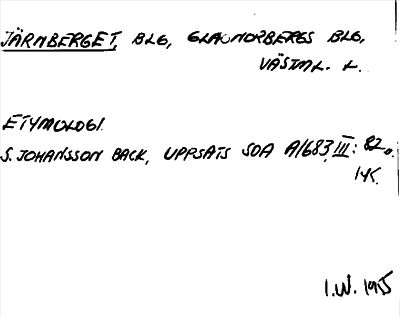 JÄRNBERGET, BLG, GRANGÄRDES BLG,
VÄSTML. L.
ETYMOLOGI.
S. JOHANSSON BACK, UPPSATS SOA A1683, III: 82
I.W. 1955